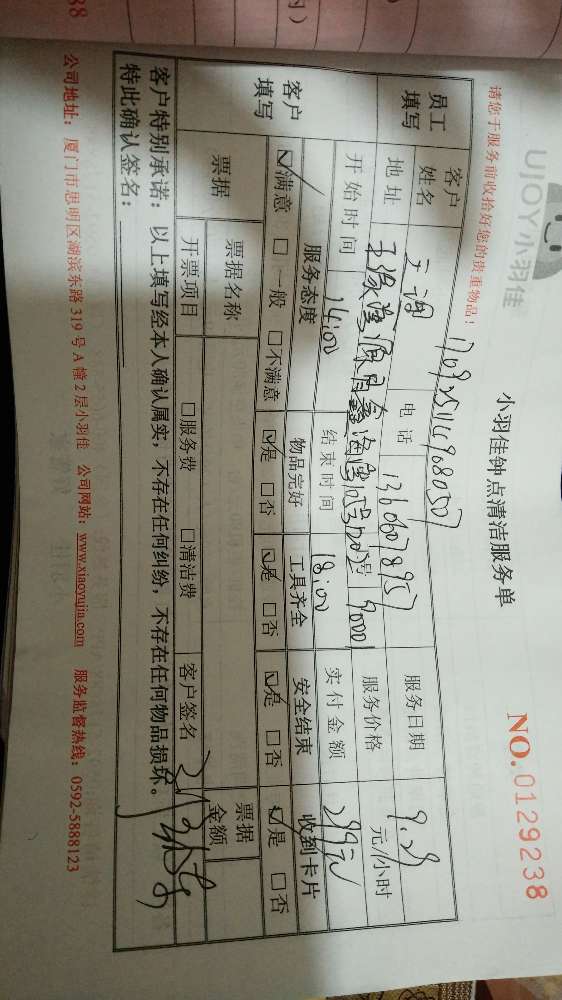 UJOY小羽佳
小羽佳钟点清洁服务单
NO.0129238
请您于服务前收拾好您的贵重物品！
员工填写
客户姓名
电话
服务日期
9.29
地址
服务价格
元/小时
开始时间
14:00
结束时间
18:00
实付金额
299元
客户填写
服务态度
物品完好
工具齐全
安全结束
收到卡片
☑满意 □一般 □不满意
☑是 □否
☑是 □否
☑是 □否
☑是 □否
票据
票据名称
票据金额
开票项目
□服务费 □清洁费
客户签名
客户特别承诺：以上填写经本人确认属实，不存在任何纠纷，不存在任何物品损坏。
特此确认签名：
公司地址：厦门市思明区湖滨东路319号A幢2层小羽佳 公司网站：www.xiaoyujia.com 服务监督热线：0592-5888123